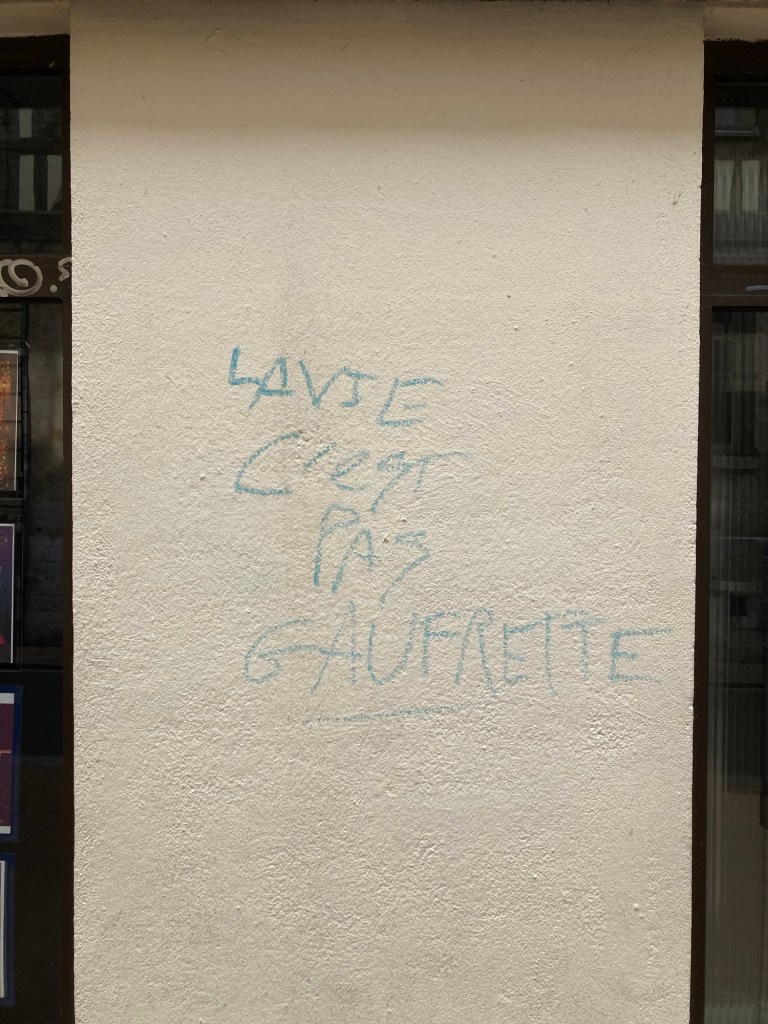 LAVIE
C'esT
PAS
GAUFRETTE